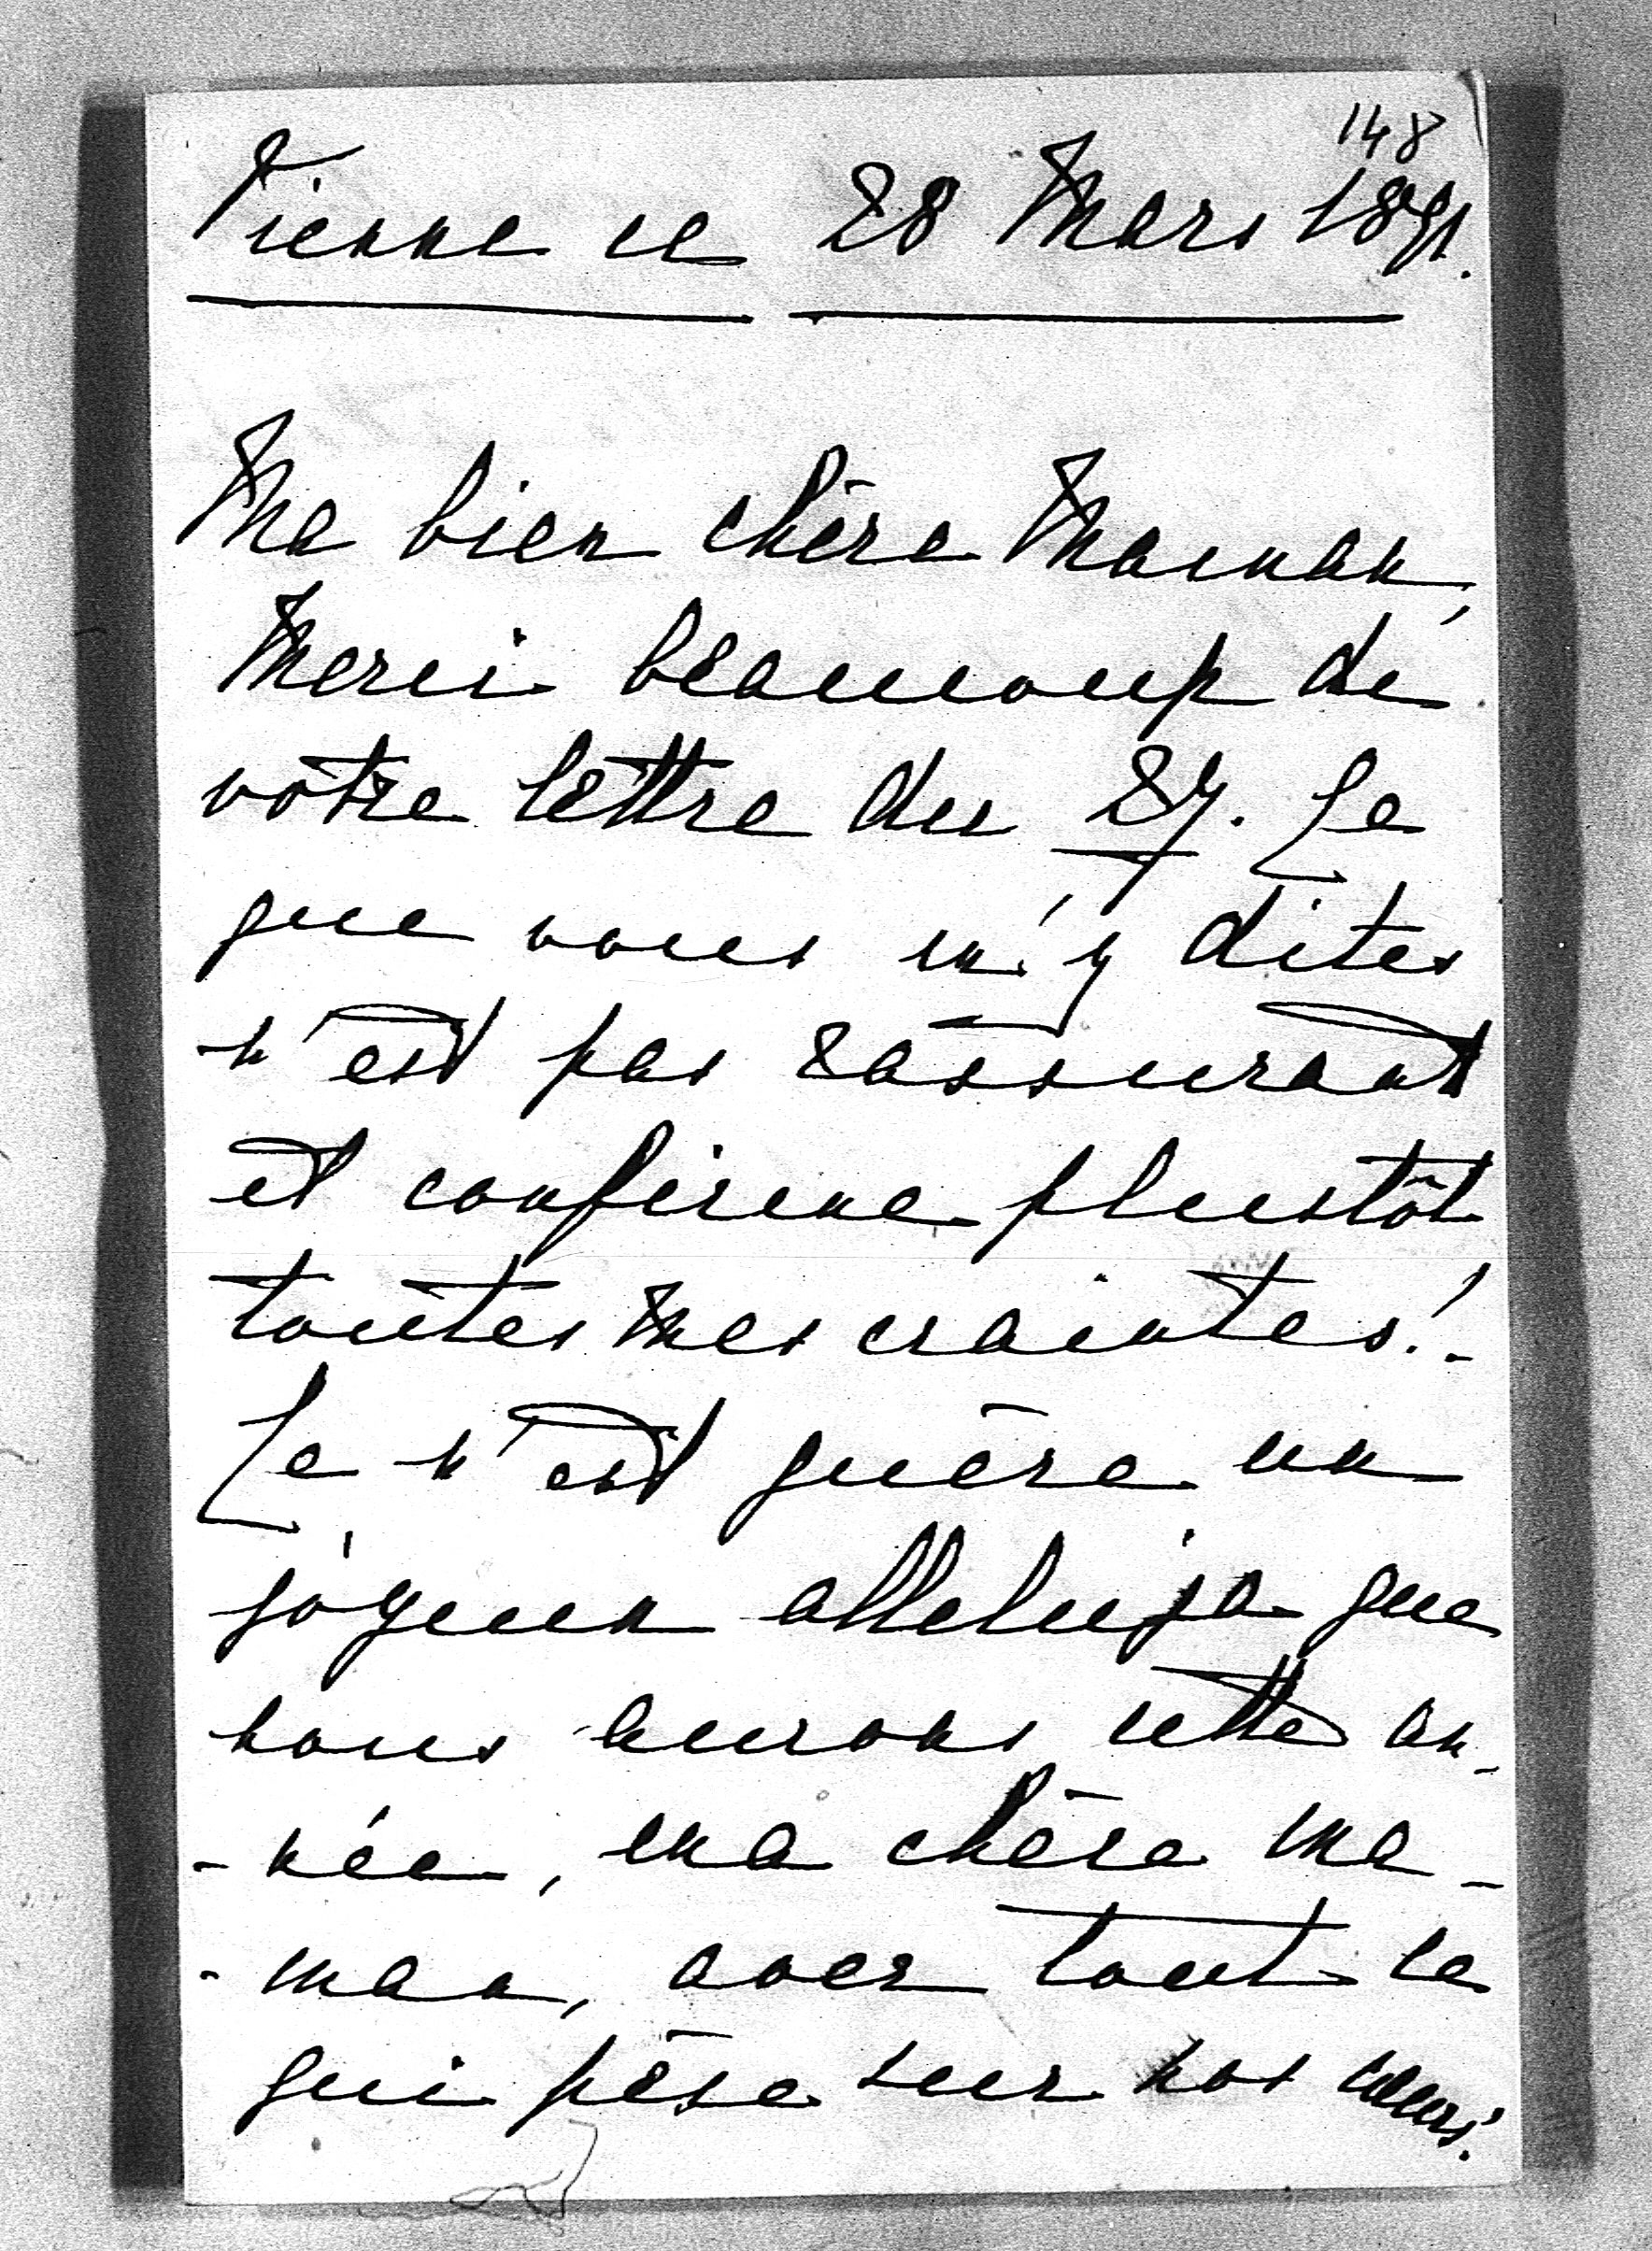 148
Vienne ce 28 Mars 1891.
Ma bien chère Maman,
Merci beaucoup de
votre lettre du 27. Ce
que vous m'y dites
n'est pas rassurant
et confirme plustôt
toutes mes craintes!.
Ce n'est guère un
joyeux alleluja que
nous aurons cette an-
-née, ma chère ma-
-man, avec tout ce
qui pèse sur nos cœurs.